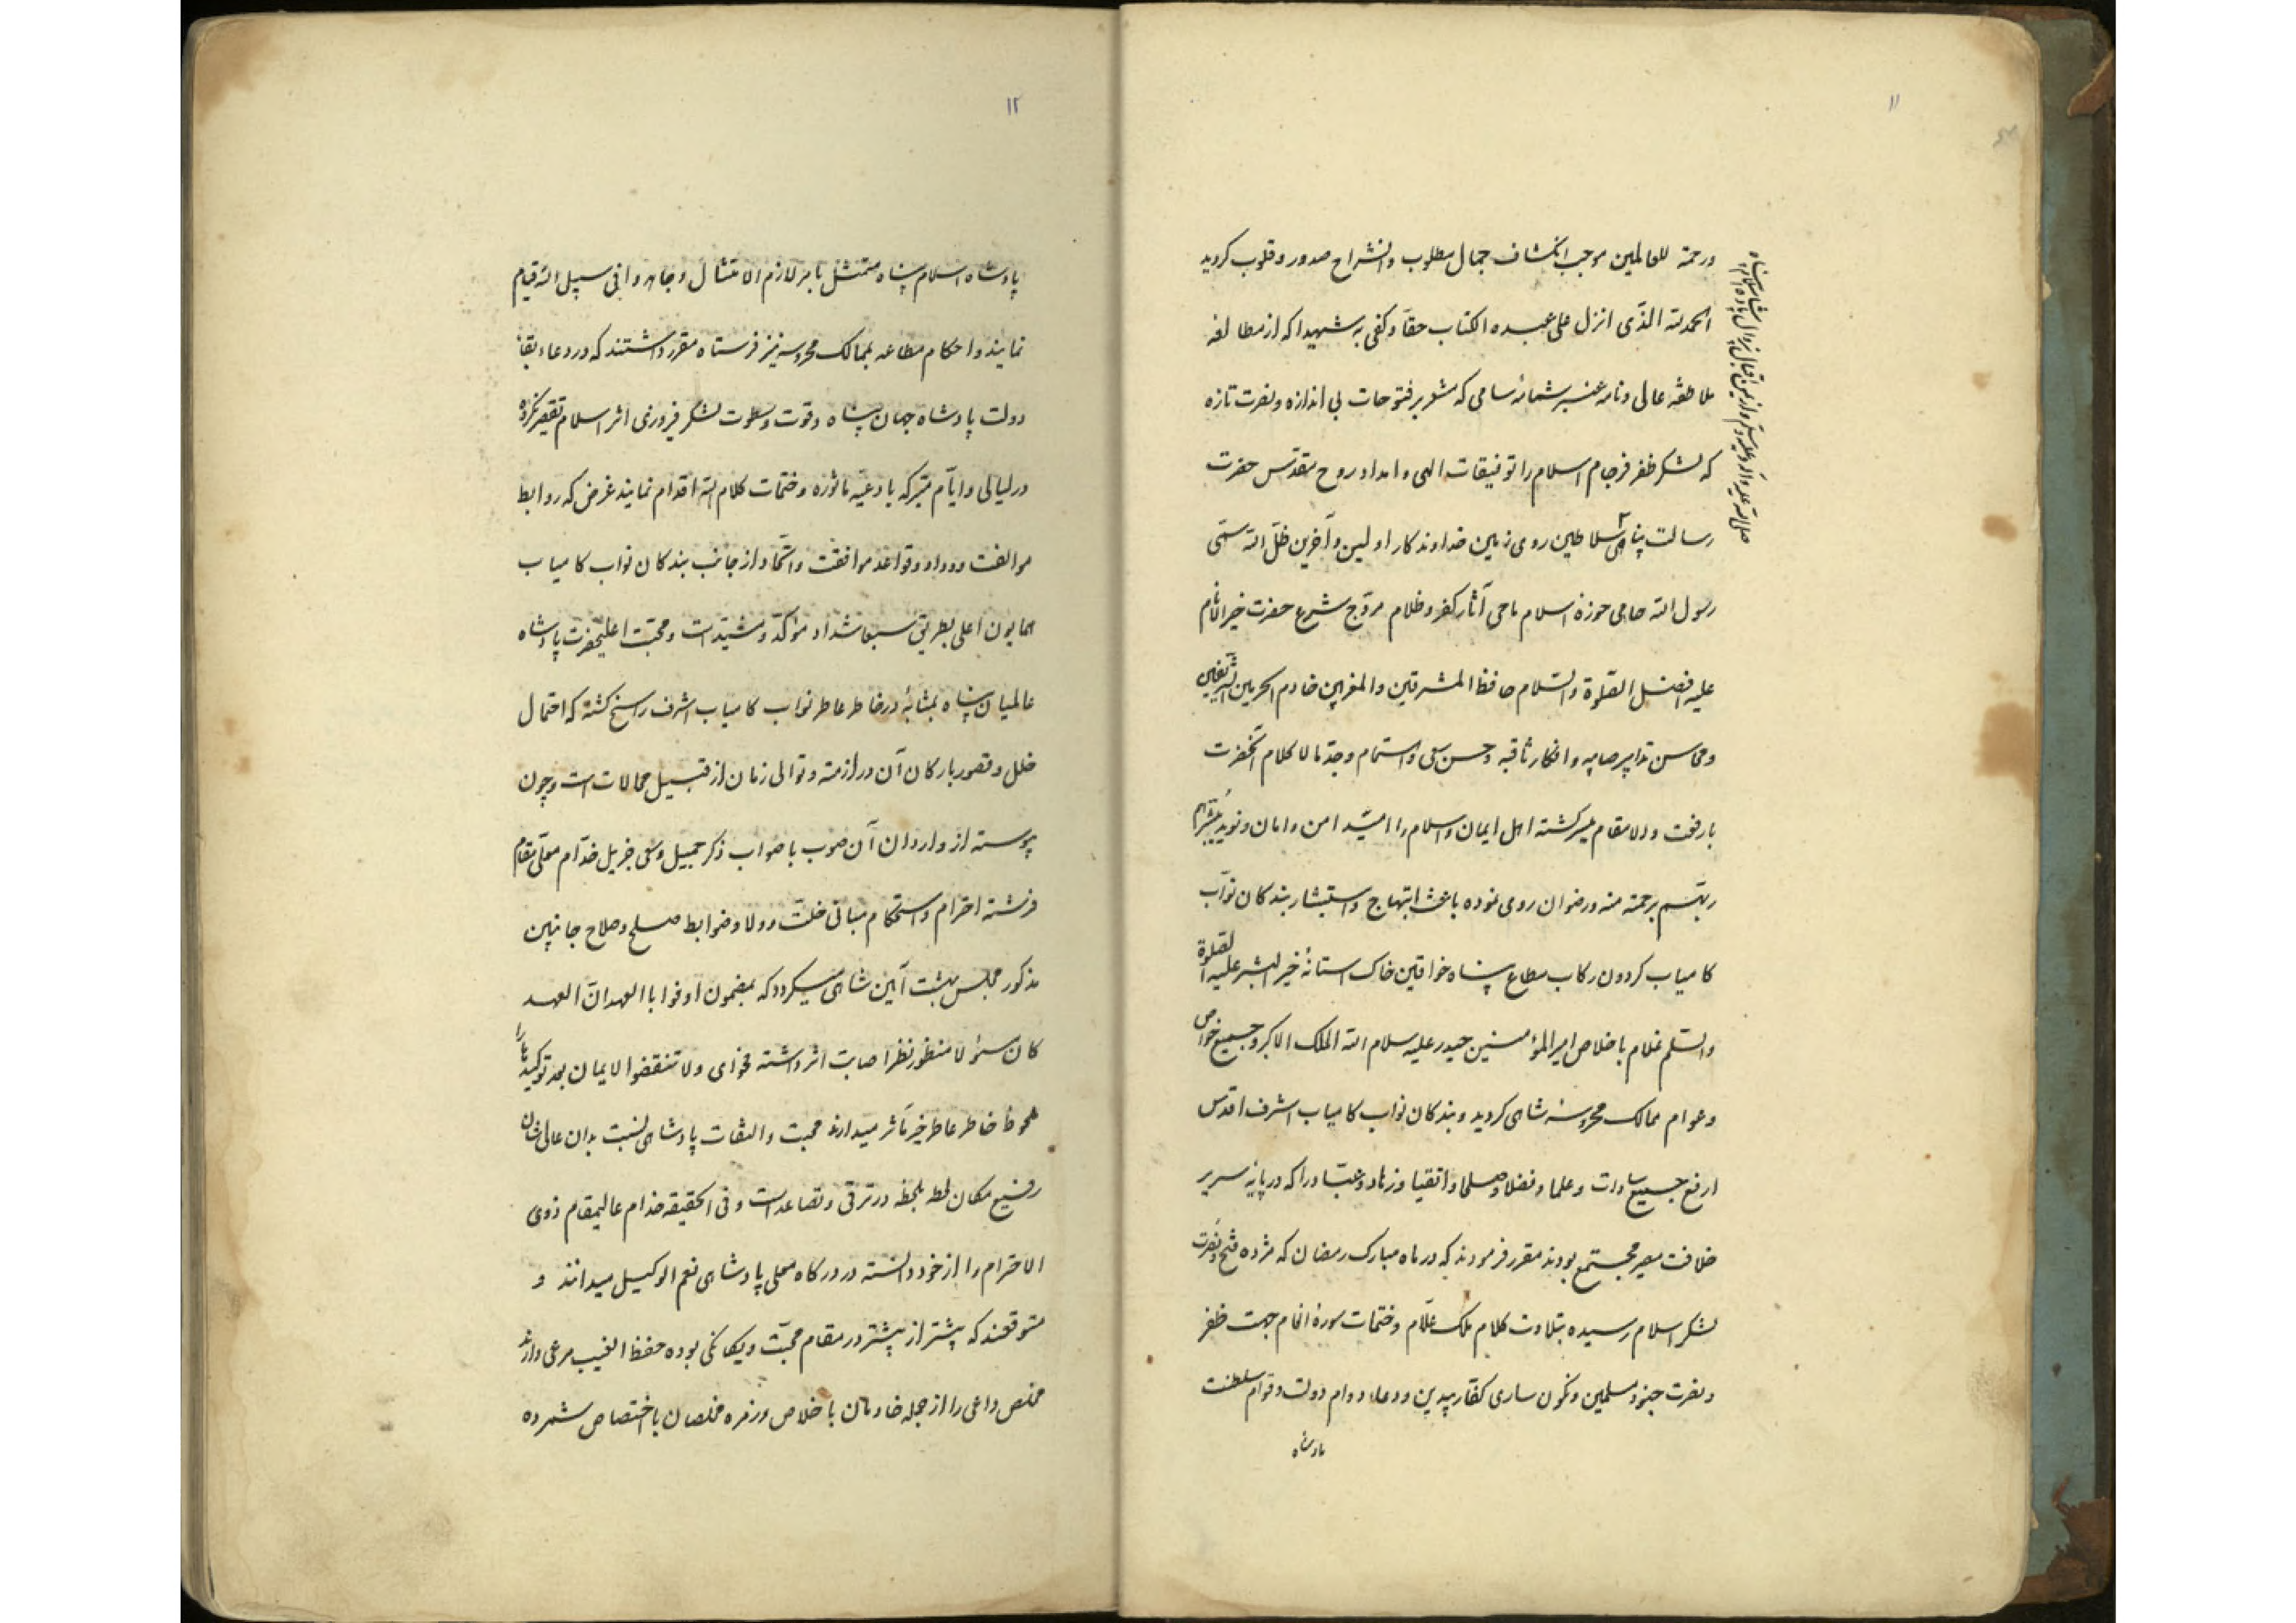 ۱۱
ورحمة للعالمین موجب انکشاف جمال مطلوب و انشراح صدور و قلوب کردید
الحمد لله الذی انزل علی عبده الکتاب حقا و کفی به شهیدا که از مطالعه
ملاطفه عالی و نامه عنبر شمامه سامی که مشعر بر فتوحات بی اندازه و نصرت تازه
که لشکر ظفر فرجام اسلام را توفیقات الهی و امداد روح مقدس حضرت
رسالت پناهی سلاطین روی زمین خداوندکار اولین و آخرین ظل الله سمی
رسول الله حامی حوزه اسلام ماحی آثار کفر و ظلام مروج شرع حضرت خیر الانام
علیه افضل الصلوة والسلام حافظ المشرقین والمغربین خادم الحرمین الشریفین
و محاسن تدابیر صایبه و افکار ثاقبه و حسن سعی و اهتمام وجد مالا کلام آنحضرت
بارفعت و ولا مقام میسر کشته اهل ایمان و اسلام را امید امن و امان و نوید یبشرهم
ربهم برحمة منه ورضوان روی نموده باعث ابتهاج و استبشار بندکان نواب
کامیاب کردون رکاب مطاع پناه خواقین خاک آستانه خیر البشر علیه الصلوة
والسلم غلام باخلاص امیر المؤمنین حیدر علیه سلام الله الملک الاکبر و جمیع خواص
و عوام ممالک محروسه شاهی کردید و بندکان نواب کامیاب اشرف اقدس
ارفع جمیع سادات و علما و فضلا و صلحا و اتقیا و زهاد و عباد را که در پایه سریر
خلافت مصیر مجتمع بودند مقرر فرمودند که در ماه مبارک رمضان که مژده فتح و نصرت
لشکر اسلام رسیده بتلاوت کلام ملک علام و ختمات سوره انعام جهت ظفر
و نصرت جنود مسلمین و نکونساری کفار بیدین و دعاء دوام دولت و قوام سلطنت
پادشاه
صلی الله علیه وآله و سلم و از یمن اقبال بیزوال پادشاه اسلام پناه
۱۲
پادشاه اسلام پناه متمثل بامر لازم الامتثال و جاهدوا فی سبیل الله قیام
نمایند و احکام مطاعه بممالک محروسه نیز فرستاه مقرر داشتند که در دعاء بقاء
دولت پادشاه جهان پناه و قوت و سطوت لشکر فیروزی اثر اسلام تقصیر نکرده
در لیالی و ایام متبرکه بادعیه ماثوره و ختمات کلام الله اقدام نمایند غرض که روابط
موالفت و وداد و قواعد موافقت و اتحاد از جانب بندکان نواب کامیاب
همایون اعلی بطریق سبعا شدادا مؤکد و مشید است و محبت اعلیحضرت پادشاه
عالمیان پناه بمثابه در خاطر عاطر نواب کامیاب اشرف راسخ کشته که احتمال
خلل و قصور بارکان آن در ازمنه و توالی زمان از قبیل محالات است و چون
پیوسته از واردان آن صوب باصواب ذکر جمیل و سعی جزیل خدام معلی مقام
فرشته احترام و استحکام مبانی خلت و ولا و ضوابط صلح و صلاح جانبین
مذکور مجلس بهشت آیین شاهی میکردد که بمضمون اوفوا بالعهد ان العهد
کان مسئولا منظور نظر اصابت اثر داشته فحوای ولا تنقضوا الایمان بعد توکیدها را
ملحوظ خاطر عاطر خیر مآثر میدارند محبت و التفات پادشاهی نسبت بدان عالی شان
رفیع مکان لحظه بلحظه در ترقی و تصاعد است و فی الحقیقه خدام عالیمقام ذوی
الاحترام را از خود دانسته در درکاه معلی پادشاهی نعم الوکیل میدانند و
متوقعند که پیشتر از پیشتر در مقام محبت و یکانکی بوده حفظ الغیب مرعی دارند
مخلص داعی را از جمله خادمان باخلاص و زمره مخلصان با اختصاص شمرده